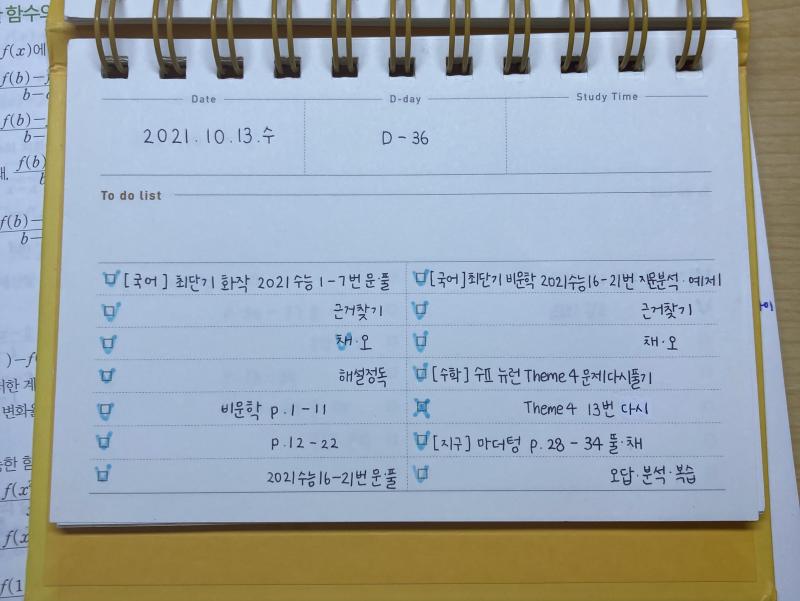 함수의
f(x)에
f(b)−
b−
f(b)−
b−
f(b)
b
f(b)−
b−
)−f(
변화율
f(1
Date
D-day
Study Time
2021.10.13.수
D-36
To do list
[국어] 최단기 화작 2021수능 1-7번 문·풀
근거찾기
채·오
해설정독
비문학 p.1-11
p.12-22
2021수능16-21번 문·풀
[국어]최단기 비문학 2021수능16-21번 지문분석·예제1
근거찾기
채·오
[수학] 수Ⅱ 뉴런 Theme 4 문제다시풀기
Theme 4 13번 다시
[지구] 마더텅 p.28-34 풀·채
오답·분석·복습